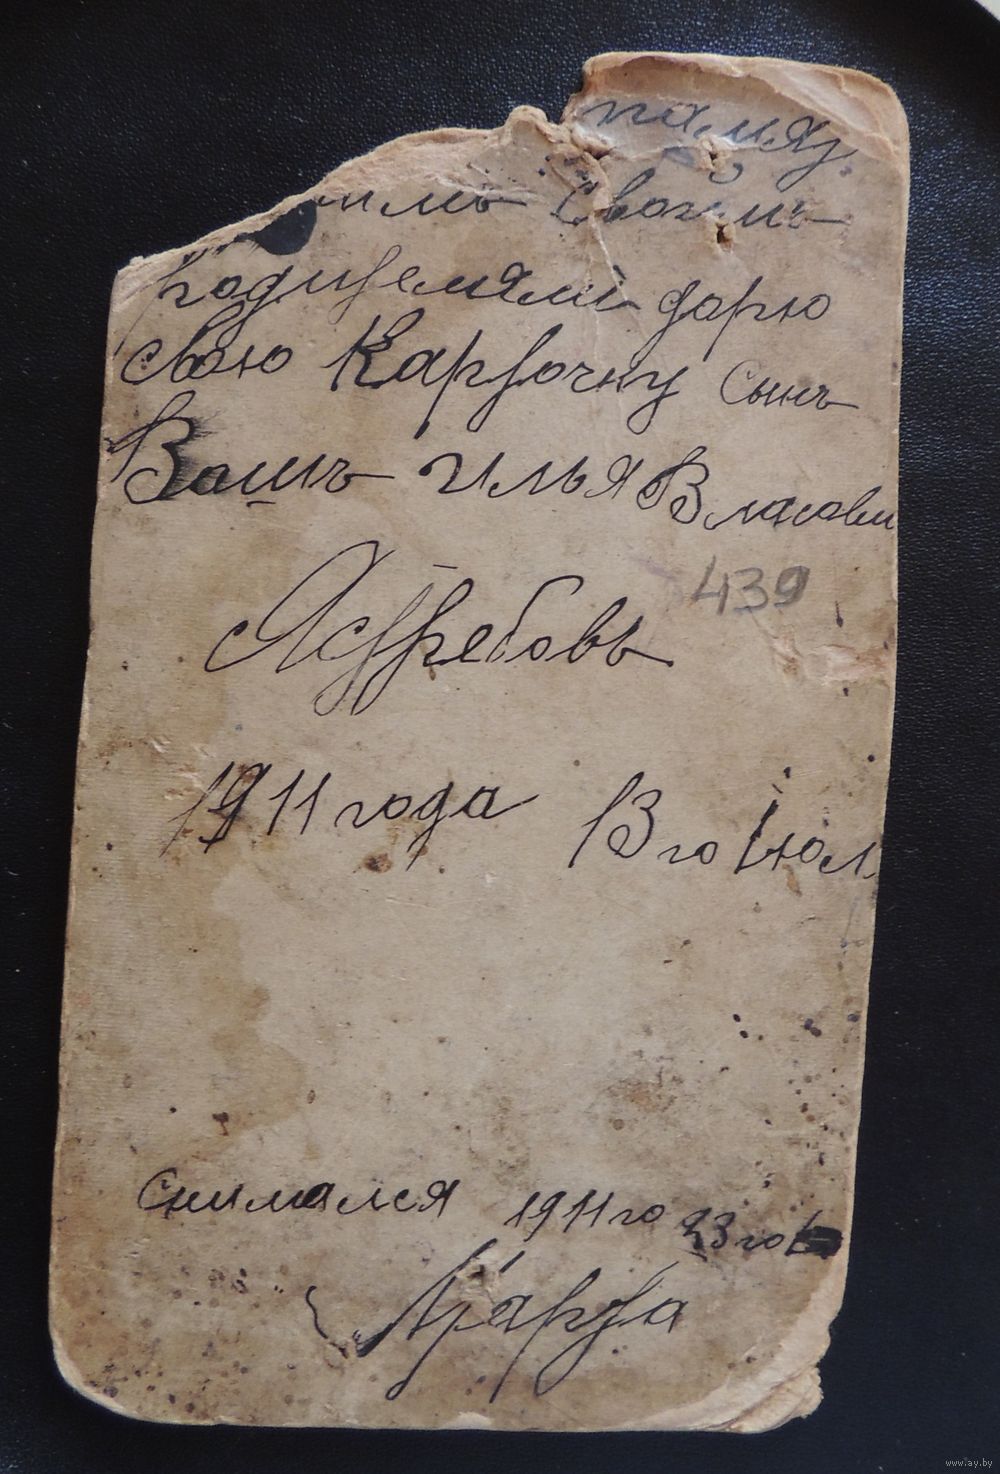 памят
своимъ
Родителямъ дарю
свою Карточку сынъ
Вашъ илья Власови
439
Ястребовъ
1911 года 13 го Іюл
снимался 1911 го 23 го
Марта
www.ay.by